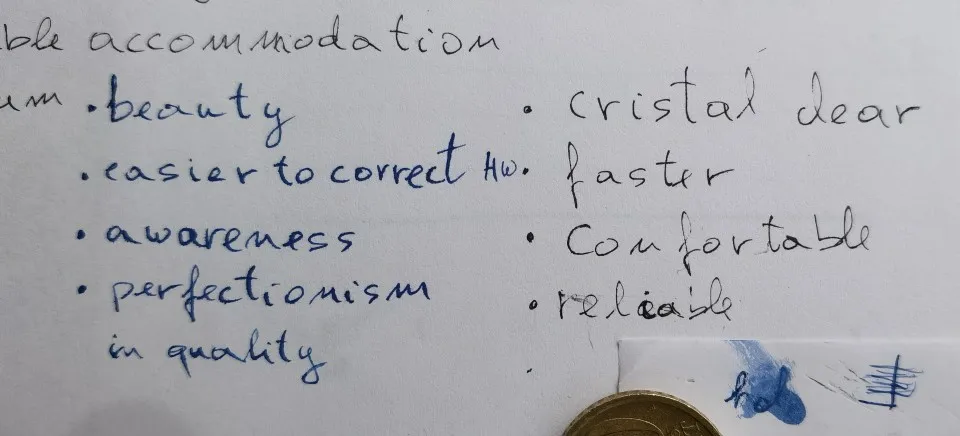 ble accommodation
um
• beauty
• easier to correct HW
• awareness
• perfectionism
in quality
• cristal clear
• faster
• comfortable
• reliable